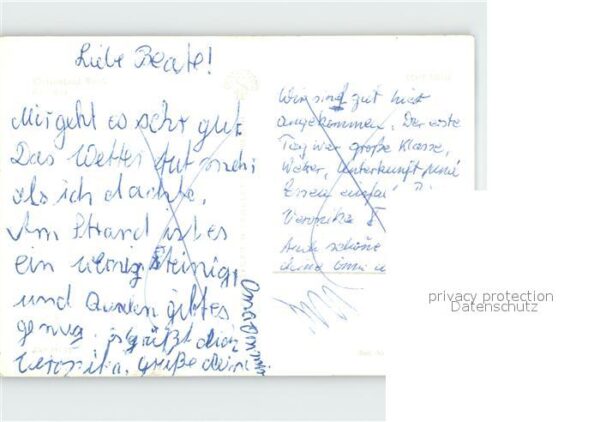 Liebe Beate!
Mir geht es sehr gut
Das Wetter tut mehr
als ich dachte.
Am Strand ist es
ein wenig steinig
und Quallen gibt es
genug. es grüßt dich
Veronika. Grüße
Oma von mir
Wir sind gut hier
angekommen. Der erste
Tag war große Klasse,
Wetter, Unterkunft und
Essen
Veronika
Auch schöne
privacy protection
Datenschutz